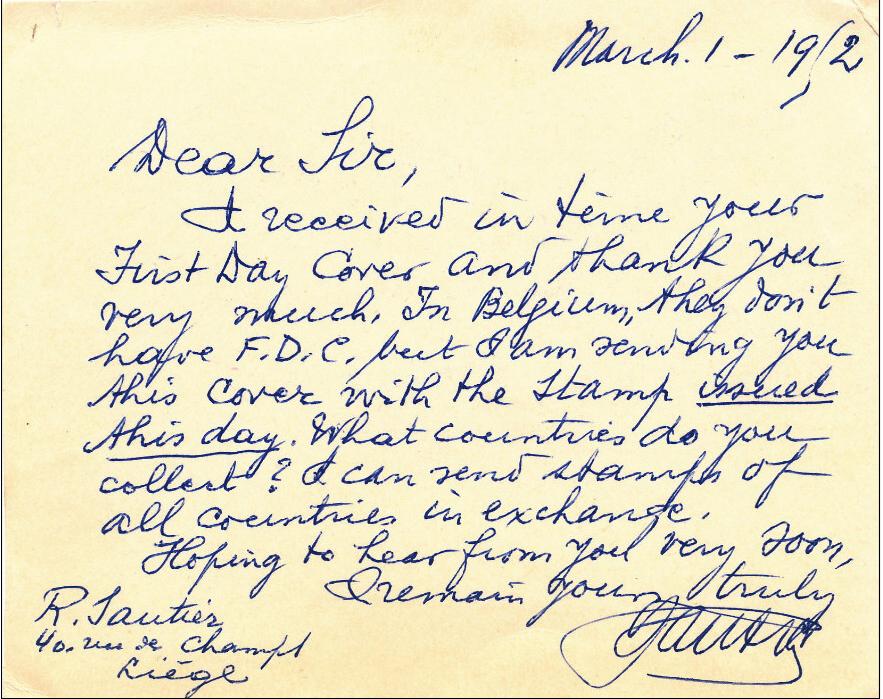 March. 1 - 1952
Dear Sir,
I received in time your
First Day Cover and thank you
very much. In Belgium, they don't
have F.D.C. but I am sending you
this cover with the stamp issued
this day. What countries do you
collect? I can send stamps of
all countries in exchange.
Hoping to hear from you very soon,
I remain yours truly
R. Sautier
40. rue de
Liége